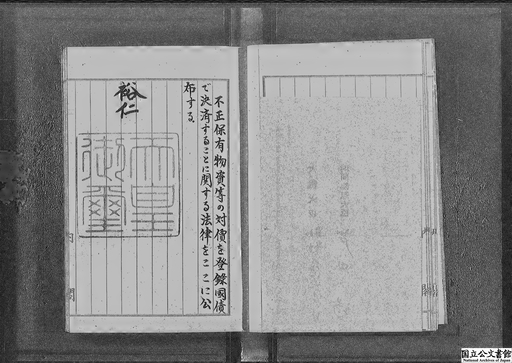 不正保有物資等の対價を登録國債
で決済することに関する法律をここに公
布する
裕仁
天皇
御璽
内閣
国立公文書館
National Archives of Japan